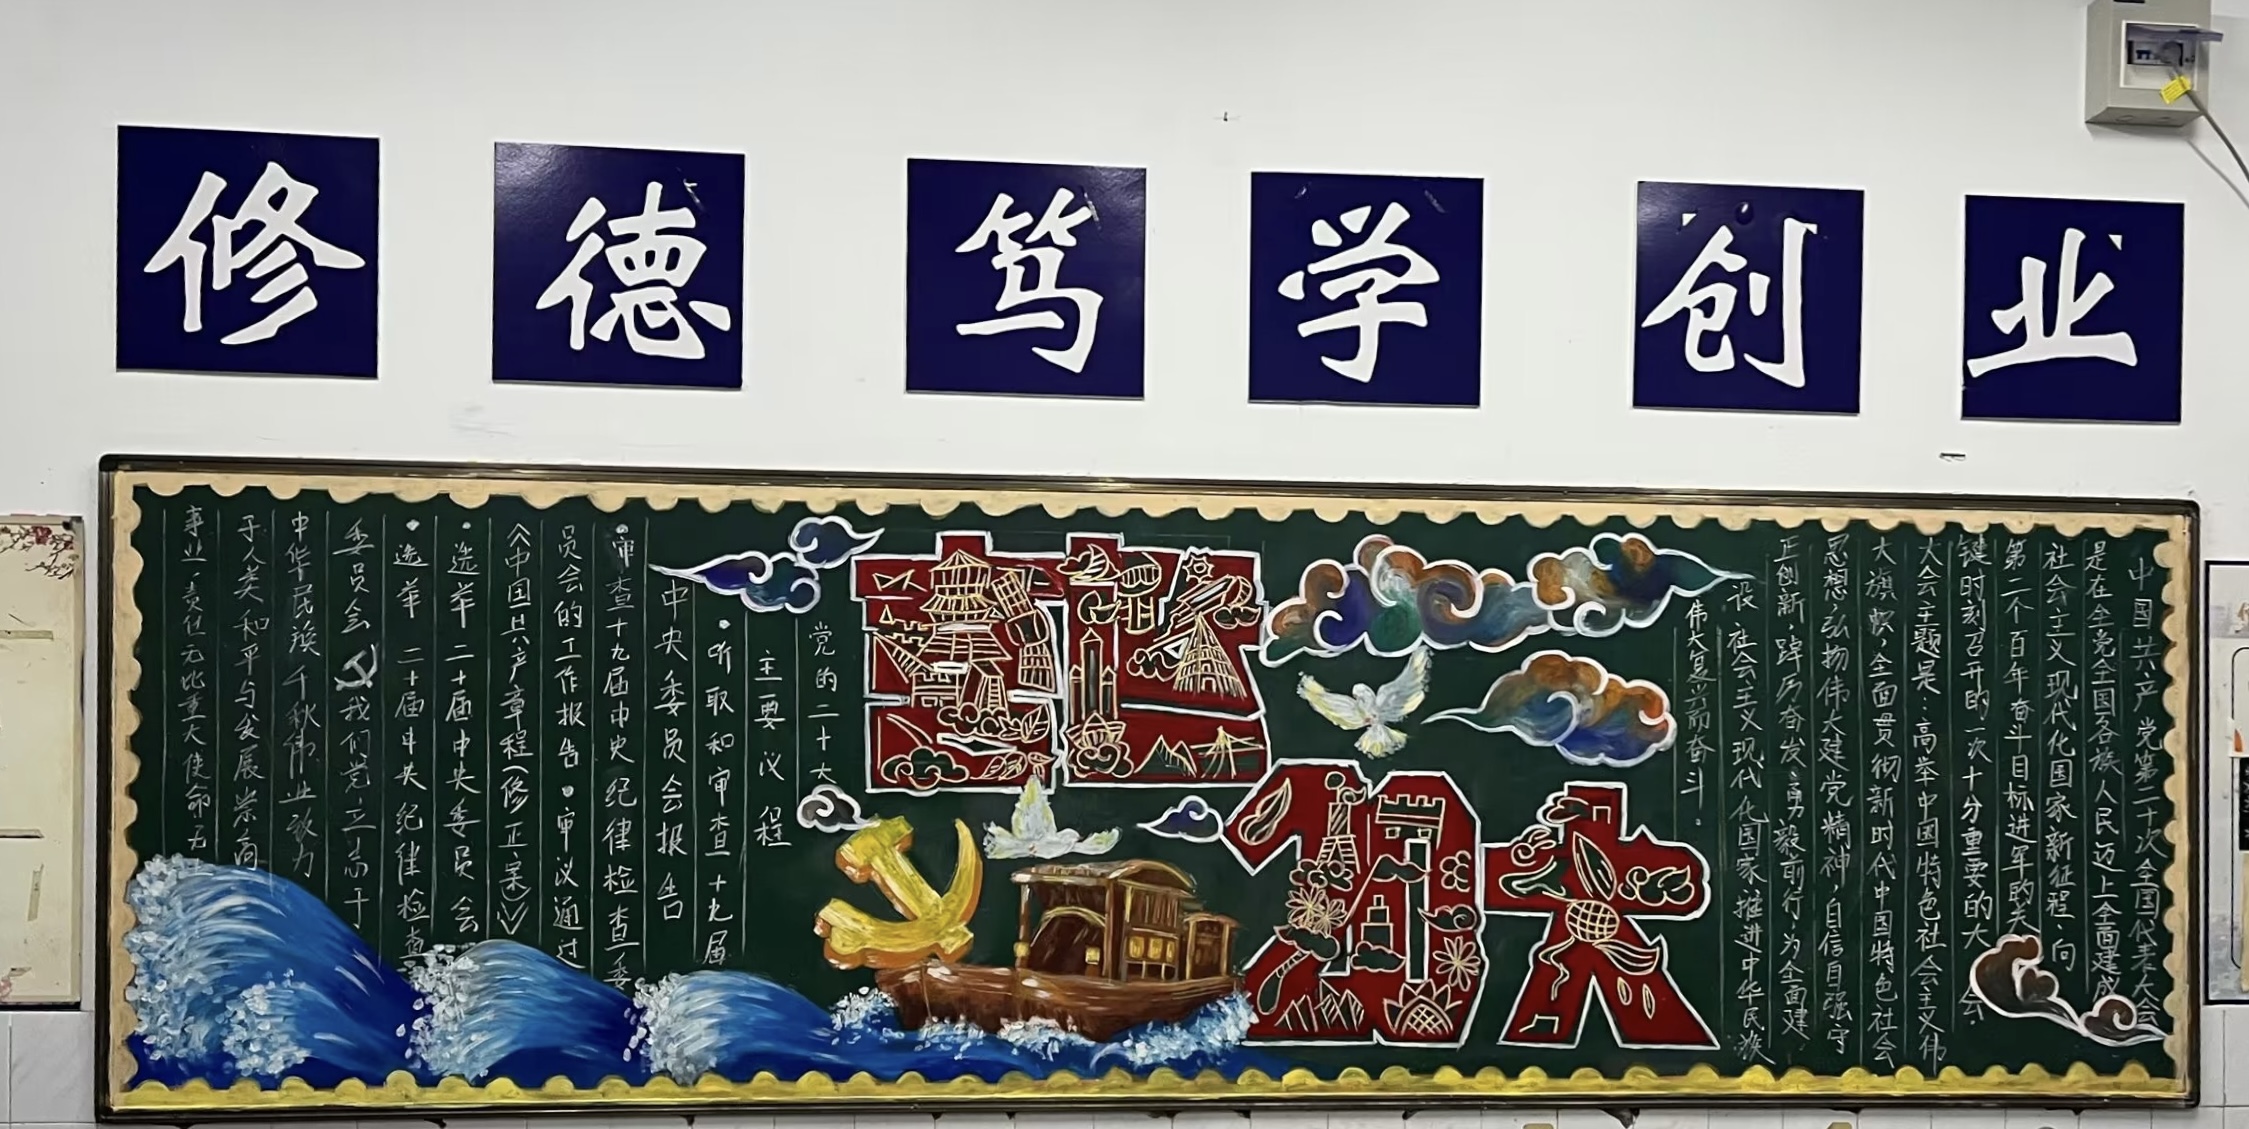 修德笃学创业
喜迎二十大
中国共产党第二十次全国代表大会
是在全党全国各族人民迈上全面建成
社会主义现代化国家新征程、向
第二个百年奋斗目标进军的关
键时刻召开的一次十分重要的大会.
大会主题是:高举中国特色社会主义伟
大旗帜,全面贯彻新时代中国特色社会
思想,弘扬伟大建党精神,自信自强守
正创新,踔厉奋发、勇毅前行,为全面建
设社会主义现代化国家推进中华民族
伟大复兴而奋斗.
党的二十大
主要议程
·听取和审查十九届
中央委员会报告
·审查十九届中央纪律检查委
员会的工作报告·审议通过
《中国共产党章程(修正案)》
·选举二十届中央委员会
·选举二十届中央纪律检查
委员会 我们党立志于
中华民族千秋伟业致力
于人类和平与发展崇高
事业,责任无比重大使命无